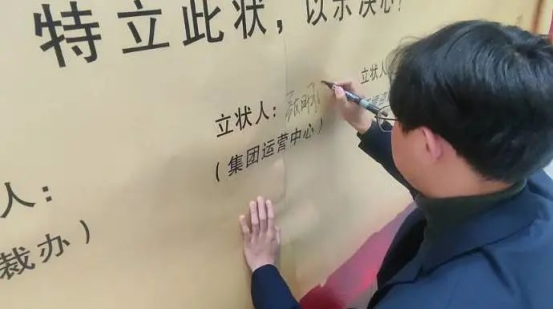 特立此状，以示决心！
立状人：
立状人：
（集团运营中心）
人：
裁办）